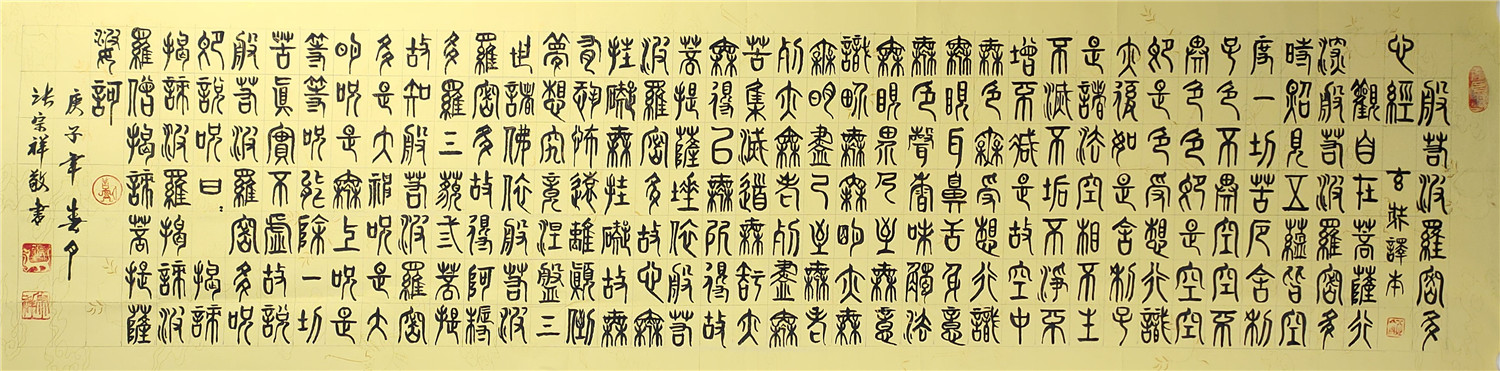 般若波羅密多
心經 玄奘譯本
觀自在菩薩行
深般若波羅密多
時照見五蘊皆空
度一切苦厄舍利
子色不異空空不
異色色即是空空
即是色受想行識
亦復如是舍利子
是諸法空相不生
不滅不垢不淨不
增不減是故空中
無色無受想行識
無眼耳鼻舌身意
無色聲香味觸法
無眼界乃至無意
識界無無明亦無
無明盡乃至無老
死亦無老死盡無
苦集滅道無智亦
無得以無所得故
菩提薩埵依般若
波羅密多故心無
挂礙無挂礙故無
有恐怖遠離顛倒
夢想究竟涅盤三
世諸佛依般若波
羅密多故得阿耨
多羅三藐弎菩提
故知般若波羅密
多是大神咒是大
明咒是無上咒是
等等咒能除一切
苦真實不虛故說
般若波羅密多咒
即說咒曰：揭諦
揭諦波羅揭諦波
羅僧揭諦菩提薩
婆訶
庚子年春月
張宗祥敬書